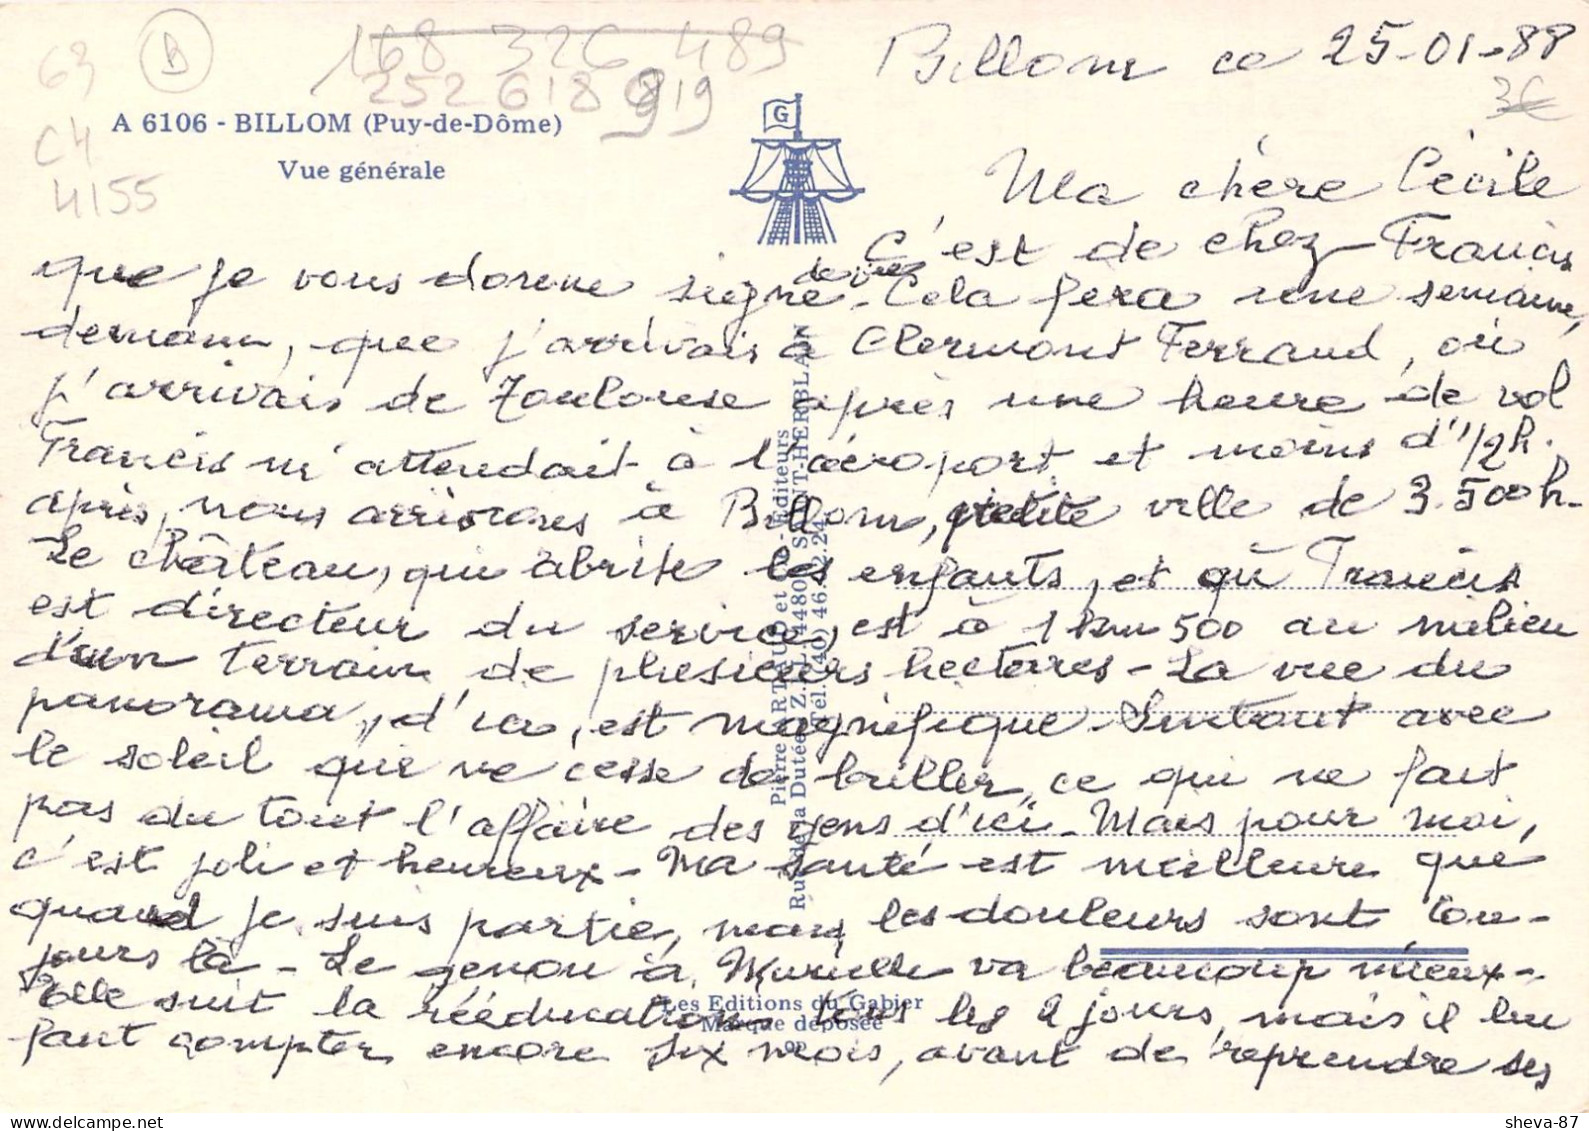 63
B
168 326 489
252 618 919
C4
4155
A 6106 - BILLOM (Puy-de-Dôme)
Vue générale
G
Billom ce 25-01-88
3€
Ma chère Cécile
C'est de chez Francis
que je vous donne signe de vie - Cela fera une semaine,
demain, que j'arrivais à Clermont Ferrand, où
j'arrivais de Toulouse après une heure de vol
Francis m'attendait à l'aéroport et moins d'1/2h.
après, nous arrivions à Billom, petite ville de 3.500h-
Le château, qui abrite les enfants, et où Francis
est directeur du service, est à 1 km 500 au milieu
d'un terrain de plusieurs hectares - La vue du
panorama, d'ici, est magnifique - Surtout avec
le soleil qui ne cesse de briller, ce qui ne fait
pas du tout l'affaire des gens d'ici - Mais pour moi,
c'est joli et heureux - Ma santé est meilleure que
quand je suis partie, mais les douleurs sont tou-
jours là - Le genou à Murielle va beaucoup mieux -
Elle suit la rééducation tous les 2 jours, mais il lui
faut compter encore six mois, avant de reprendre ses
Pierre ARTAUD et Cie - Editeurs
Rue de la Dutée - Z.I.L. 44800 SAINT-HERBLAIN
Tél. (40) 46.52.24
Les Editions du Gabier
Marque déposée
sheva-87